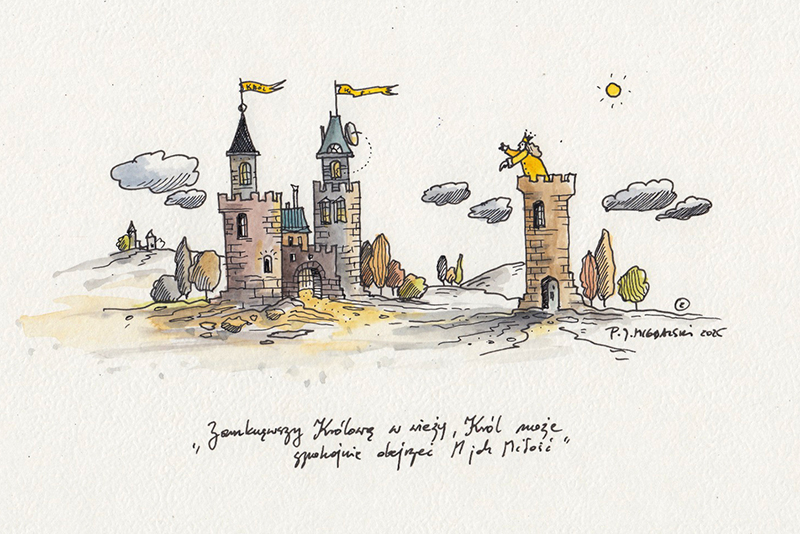 KRÓL
©
P. J. MIGDALSKI 2025
„Zamknąwszy Królową w wieży, Król może
spokojnie obejrzeć M jak Miłość”